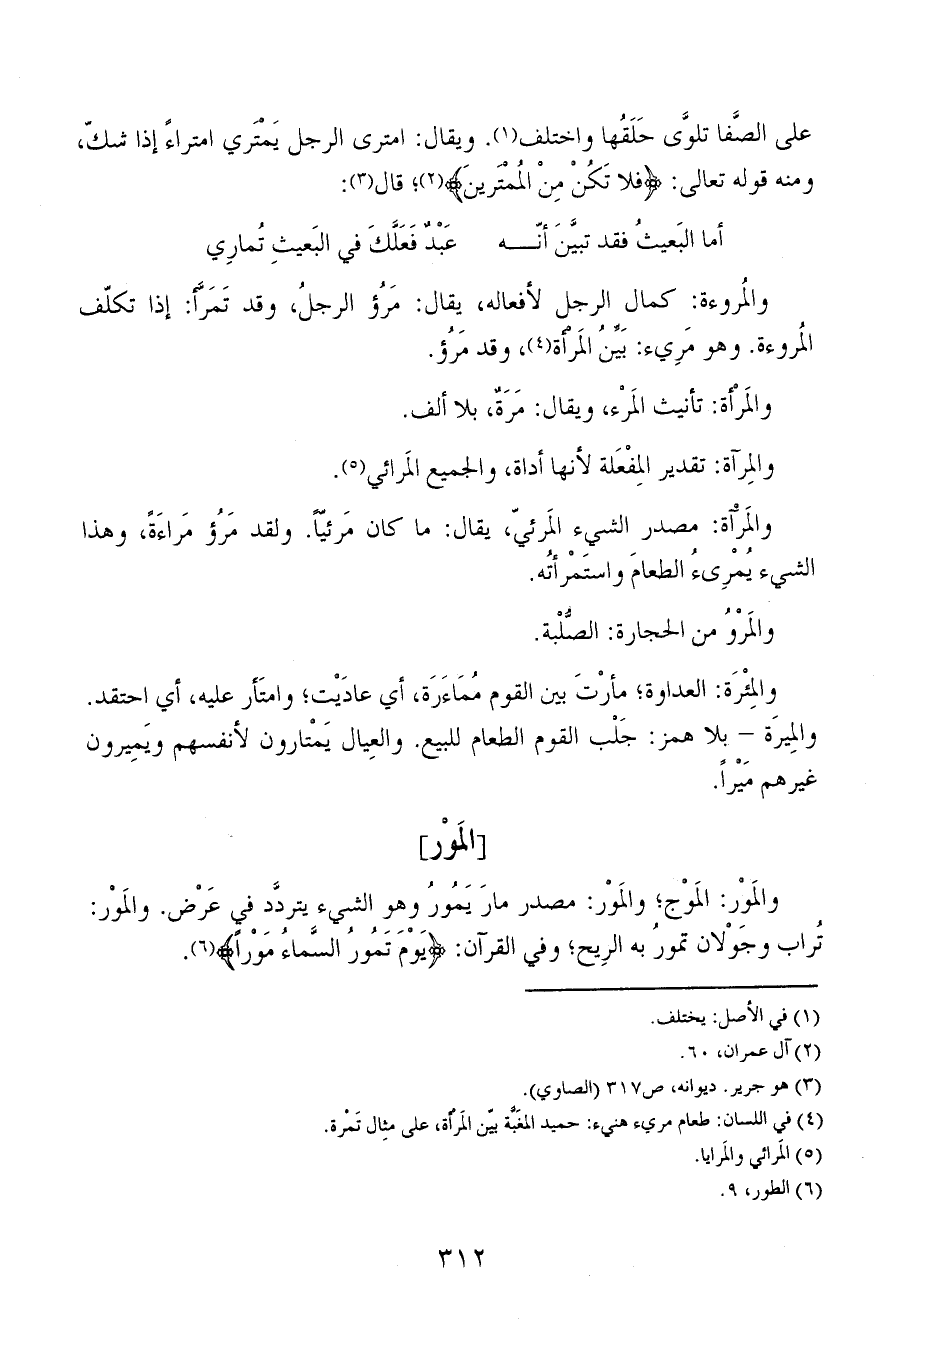 على الصَّفا تلوَّى حَلَقُها واختلف(١). ويقال: امترى الرجل يَمْتَري امتراءً إذا شكّ،
ومنه قوله تعالى: ﴿فلا تَكُنْ مِنْ الْمُمْتَرينَ﴾(٢)؛ قال(٣):
أما البَعيثُ فقد تبيَّنَ أنّـــه عَبْدٌ فَعَلَّكَ في البَعيثِ تُماري
والمُروءة: كمال الرجل لأفعاله، يقال: مَرُؤ الرجلُ، وقد تَمَرَّأَ: إذا تكلّف
المُروءة. وهو مَرِيء: بَيِّنُ المَرْأة(٤)، وقد مَرُؤ.
والمَرْأة: تأنيث المَرْء، ويقال: مَرَةٌ، بلا ألف.
والمِرآة: تقدير المِفْعَلة لأنها أداة، والجميع المَرائي(٥).
والمَرْآة: مصدر الشيء المَرئيّ، يقال: ما كان مَرئيّاً. ولقد مَرُؤ مَراءَةً، وهذا
الشيء يُمْرِىءُ الطعامَ واستَمْرأتُه.
والمَرْوُ من الحجارة: الصُّلْبة.
والمِئْرَة: العداوة؛ مأرْتَ بين القوم مُمَاءَرَة، أي عادَيْت؛ وامتَأر عليه، أي احتقد.
والمِيرَة – بلا همز: جَلْب القوم الطعام للبيع. والعِيال يَمْتارون لأنفسهم ويَمِيرون
غيرهم مَيْراً.
[المَوْر]
والمَوْر: المَوْج؛ والمَوْر: مصدر مارَ يَمُورُ وهو الشيء يتردَّد في عَرْض. والمَوْر:
تُراب وجَوْلان تمورُ به الريح؛ وفي القرآن: ﴿يَوْمَ تَمُورُ السَّماءُ مَوْراً﴾(٦).
(١) في الأصل: يختلف.
(٢) آل عمران، ٦٠.
(٣) هو جرير. ديوانه، ص٣١٧ (الصاوي).
(٤) في اللسان: طعام مريء هنيء: حميد المغَبَّة بيّن المَرْأة، على مثِال تَمْرة.
(٥) المَرائي والمَرايا.
(٦) الطور، ٩.
٣١٢